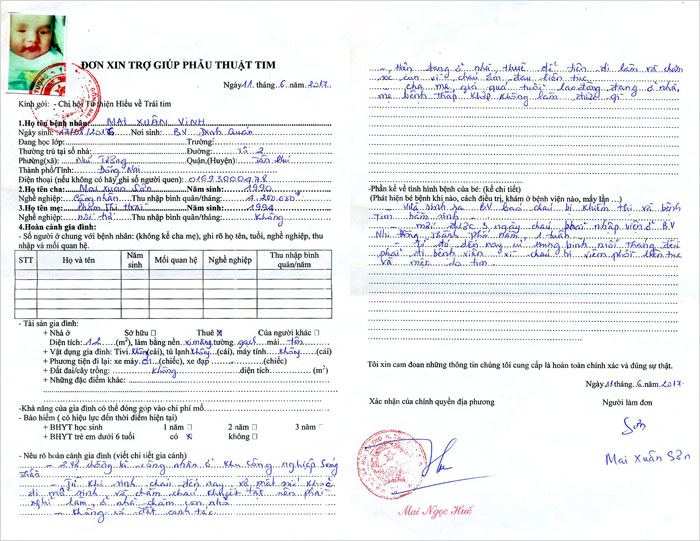 ĐƠN XIN TRỢ GIÚP PHẪU THUẬT TIM
Ngày 11 tháng 6 năm 2017
Kính gởi: - Chi hội Từ thiện Hiểu về Trái tim
1.Họ tên bệnh nhân: MAI XUÂN VINH
Ngày sinh: Nơi sinh: BV Định Quán
Đang học lớp: Trường:
Thường trú tại số nhà: Đường: Tổ 2
Phường(xã): Quận,(Huyện): Tân Phú
Thành phố/Tỉnh: Đồng Nai
Điện thoại (nếu không có hãy ghi số người quen): 01693000478
2.Họ tên cha: Mai Xuân Sơn Năm sinh: 1990
Nghề nghiệp: Công nhân Thu nhập bình quân/tháng: 4.200.000đ
3.Họ tên mẹ: Phạm Thị Năm sinh: 1994
Nghề nghiệp: nội trợ Thu nhập bình quân/tháng: Không
4.Hoàn cảnh gia đình:
- Số người ở chung với bệnh nhân: (không kể cha mẹ), ghi rõ họ tên, tuổi, nghề nghiệp, thu
nhập và mối quan hệ.
STT Họ và tên Năm sinh Mối quan hệ Nghề nghiệp Thu nhập bình quân/năm
- Tài sản gia đình:
+ Nhà ở Sở hữu Thuê Của người khác
Diện tích: 12 (m²), làm bằng nền: xi măng tường: gạch mái: tôn
+ Vật dụng gia đình: Tivi: không (cái), tủ lạnh không (cái), máy tính không (cái)
+ Phương tiện đi lại: xe máy: (chiếc), xe đạp (chiếc)
+ Đất đai/cây trồng: không diện tích (m²)
+ Những đặc điểm khác:
-Khả năng của gia đình có thể đóng góp vào chi phí mổ
- Bảo hiểm ( có hiệu lực đến thời điểm hiện tại)
+ BHYT học sinh 1 năm 2 năm 3 năm
+ BHYT trẻ em dưới 6 tuổi có không
- Nêu rõ hoàn cảnh gia đình (viết chi tiết gia cảnh)
- 2 vợ chồng là công nhân ở khu công nghiệp Sóng
Thần
- Từ khi sinh cháu đến nay vợ mất sức khỏe
đi mổ sinh và chăm cháu khuyết tật nên phải
nghỉ làm ở nhà chăm con nhỏ
- Không có đất canh tác.
- Hiện đang ở nhà thuê để tiện đi làm và chăm
sóc con vì cháu ốm đau liên tục
- cha mẹ già quá tuổi lao động đang ở nhà,
mẹ bệnh thấp khớp không làm được gì
-Phần kể về tình hình bệnh của bé: (kể chi tiết)
(Phát hiện bé bệnh khi nào, cách điều trị, khám ở bệnh viện nào, mấy lần…)
- Nhà sinh ra BV báo cháu bị khiếm thị và bệnh
Tim bẩm sinh
- mới được 5 ngày cháu phải nhập viện ở BV
Nhi Đồng Thành Phố nằm 1 tuần
- từ đó đến nay cứ trung bình mỗi tháng đều
phải đi bệnh viện vì cháu bị viêm phổi liên tục
và mệt do tim
Tôi xin cam đoan những thông tin chúng tôi cung cấp là hoàn toàn chính xác và đúng sự thật.
Ngày 11 tháng 6 năm 2017
Xác nhận của chính quyền địa phương Người làm đơn
Sơn
Mai Xuân Sơn
Mai Ngọc Huế